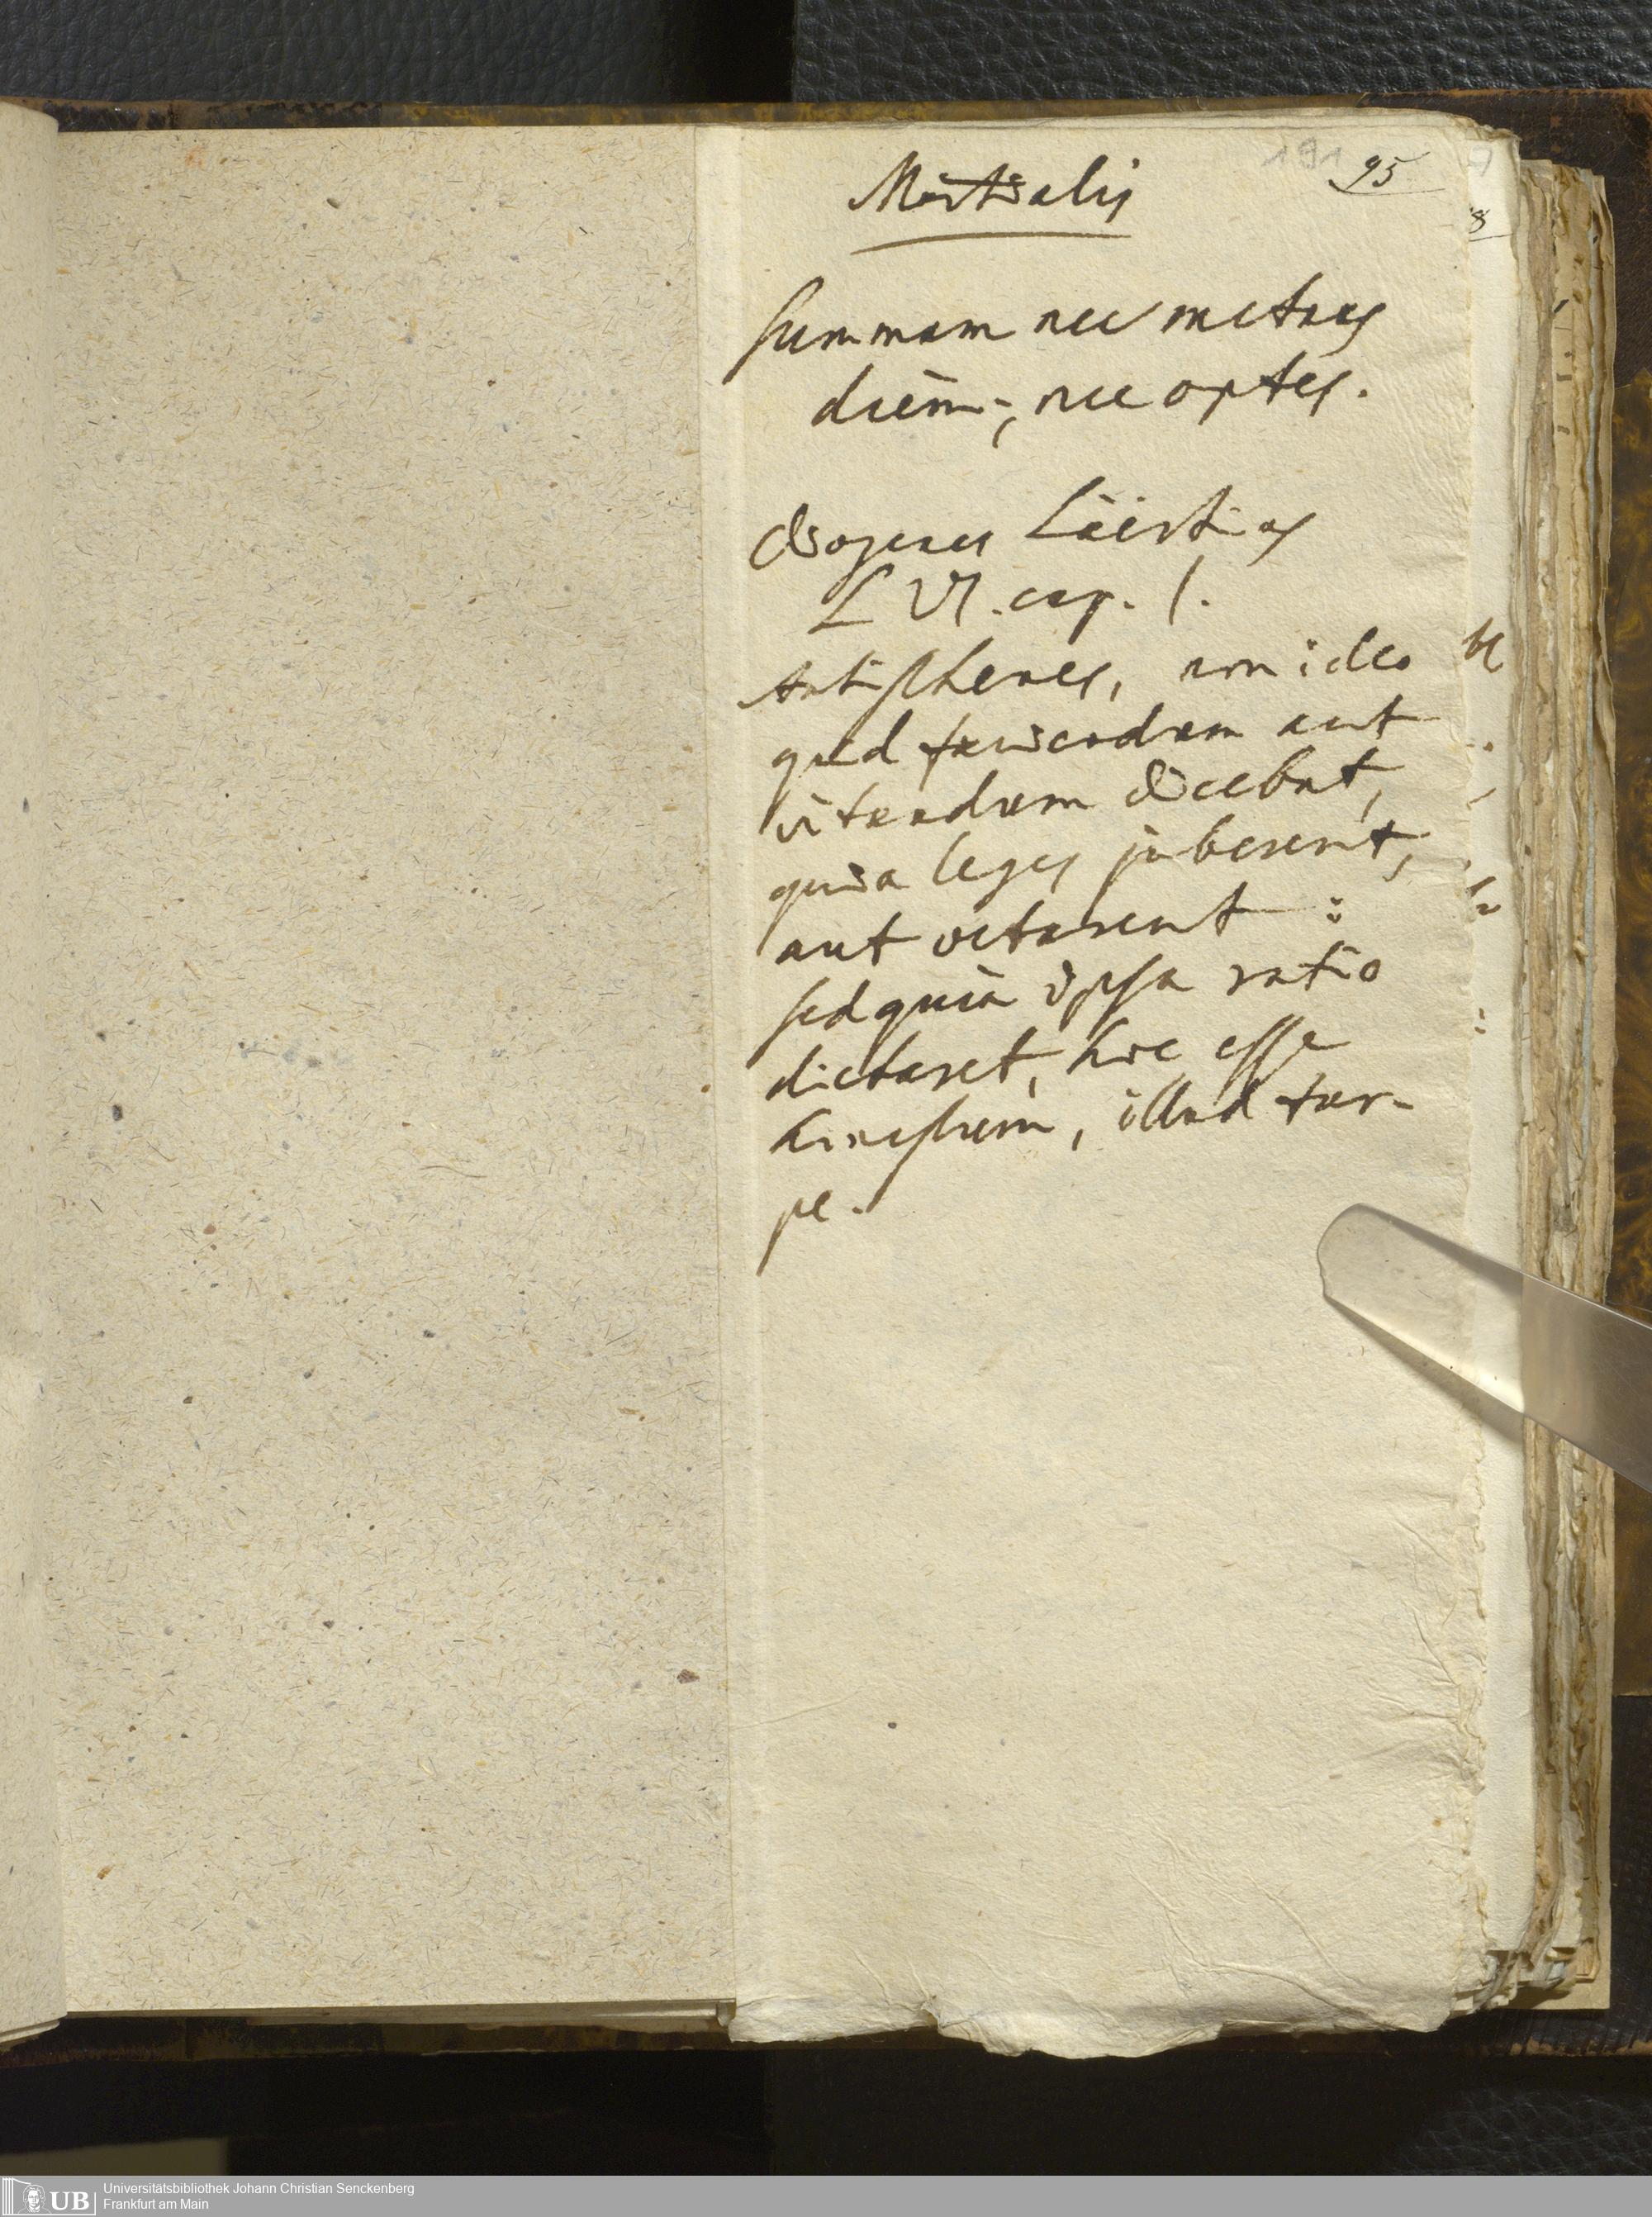 191 95
Martialis
Summam nec metuas
diem, nec optes.
Diogenes Läertius
L VI. cap. 1.
Antisthenes, non ideo
quid faciendum aut
vitandum dicebat,
quia leges juberent,
aut vetarent:
sed quia ipsa ratio
dictaret, hoc esse
honestum, illud tur-
pe.
8
UB
Universitätsbibliothek Johann Christian Senckenberg
Frankfurt am Main